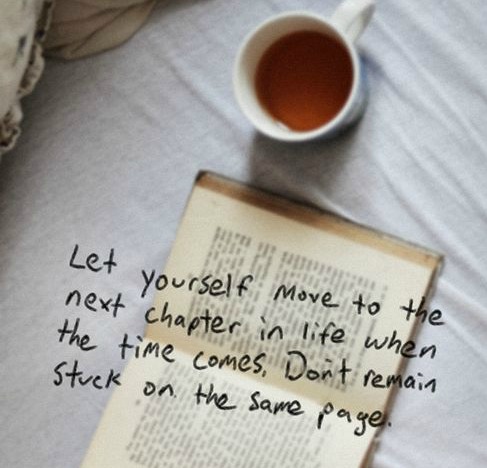 Let yourself move to the
next chapter in life when
the time comes. Don't remain
stuck on the same page.